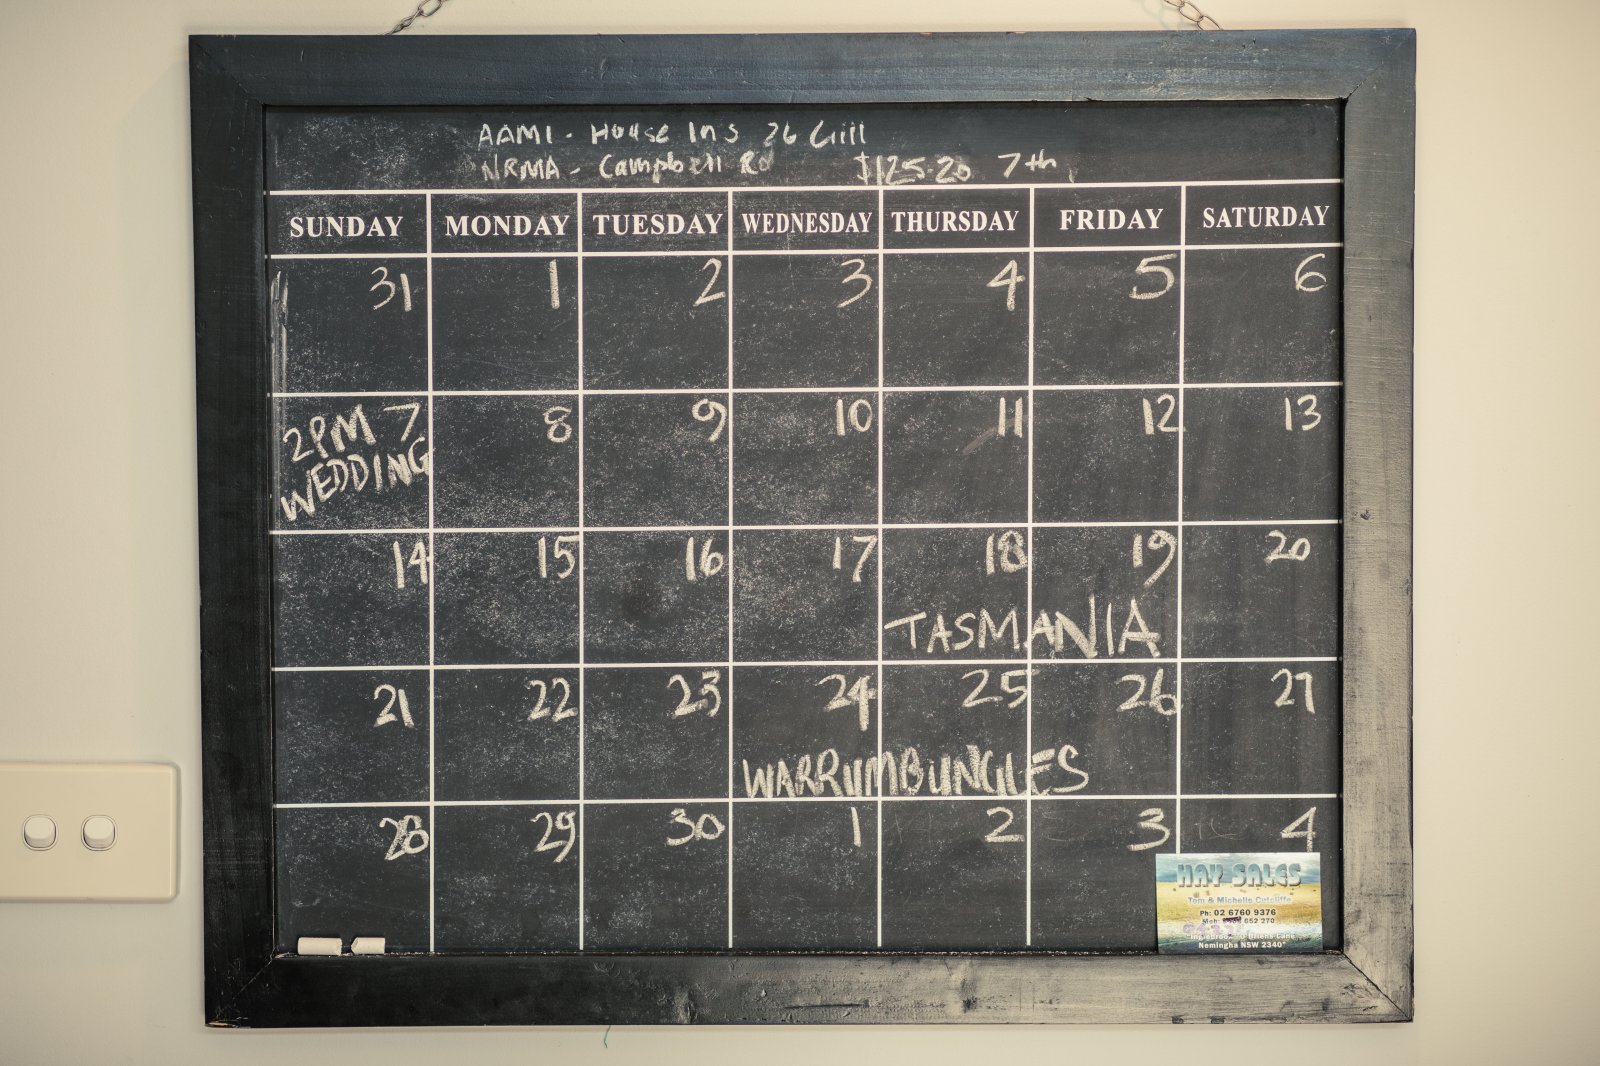 AAMI - House Ins 26 Gill
NRMA - Campbell Rd $125.20 7th
SUNDAY MONDAY TUESDAY WEDNESDAY THURSDAY FRIDAY SATURDAY
31 1 2 3 4 5 6
2PM 7 8 9 10 11 12 13
WEDDING
14 15 16 17 18 19 20
TASMANIA
21 22 23 24 25 26 27
WARRUMBUNGLES
28 29 30 1 2 3 4
HAY SALES
Tom & Michelle Cutcliffe
Ph: 02 6760 9376
Mob: 652 270
Lane
Nemingha NSW 2340"